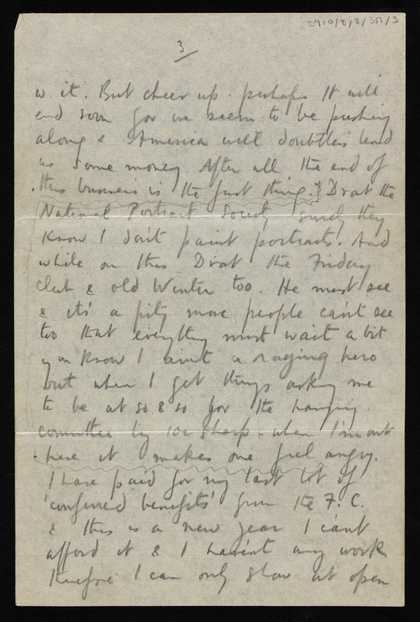 8910/2/2/351/3
3
w it. But cheer up. perhaps it will
end soon for we seem to be pushing
along & America will doubtless lend
us some money. After all the end of
this business is the first thing. Drat the
National Portrait Society surely they
know I don't paint portraits. And
while on this Drat the Friday
Club & old Winter too. He must see
& it's a pity more people can't see
too that everything must wait a bit
you know I ain't a raging hero
but when I get things asking me
to be at so & so for the hanging
committee by 10 sharp - when I'm out
here it makes one feel angry.
I have paid for my last lot of
'conferred benefits' from the F.C.
& this is a new year I can't
afford it & I haven't any work
therefore I can only show at open